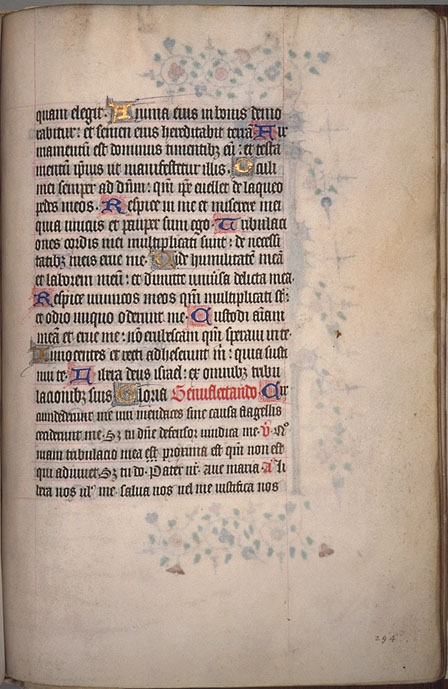 quam elegit. Anima eius in bonis demo
rabitur: et semen eius hereditabit terrā Fir
mamentū est dominus timentibz eū: et testa
mentū ipsius ut manifestetur illis. Oculi
mei semper ad dn̄m: qm̄ ip̄e euellet de laqueo
pedes meos. Respice in me et miserere mei
quia unicus et pauper sum ego. Tribulaci
ones cordis mei multiplicati sunt: de necessi
tatibz meis erue me. Vide humilitatē meā
et laborem meū: et dimitte uniuersa delicta mea.
Respice inimicos meos qm̄ multiplicati st̄:
et odio iniquo oderunt me. Custodi aīam
meā et erue me: nō erubescam qm̄ speraui in te.
Innocentes et recti adheserunt m̄: quia susti
nui te. Libera deus israel: et omnibz tribu
lacionibz suis. Gloria Genuflectando. Cir
cumdederunt me uiri mendaces sine causa flagellis
ceciderunt me. Sz tu dn̄e defensor uindica me. V. Qn̄o
niam tribulacio mea est proxima et qm̄ non est
qui adiuuet. Sz tu do. Pater nr̄. aue maria. a Li
bera nos ul' me. salua nos uel me iustifica nos
294